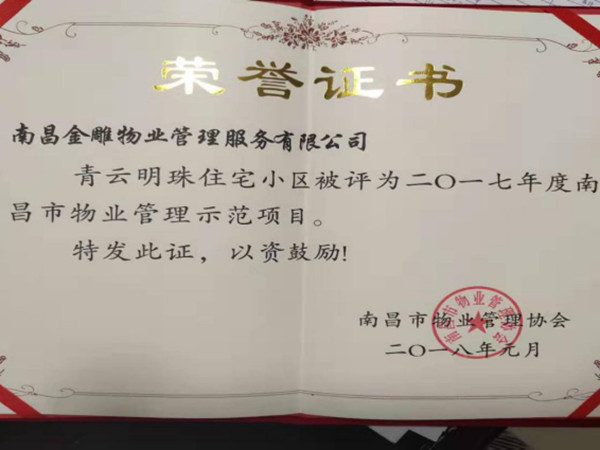 荣誉证书
南昌金雕物业管理服务有限公司
青云明珠住宅小区被评为二〇一七年度南
昌市物业管理示范项目。
特发此证，以资鼓励!
南昌市物业管理协会
南昌市物业管理协会
二〇一八年元月